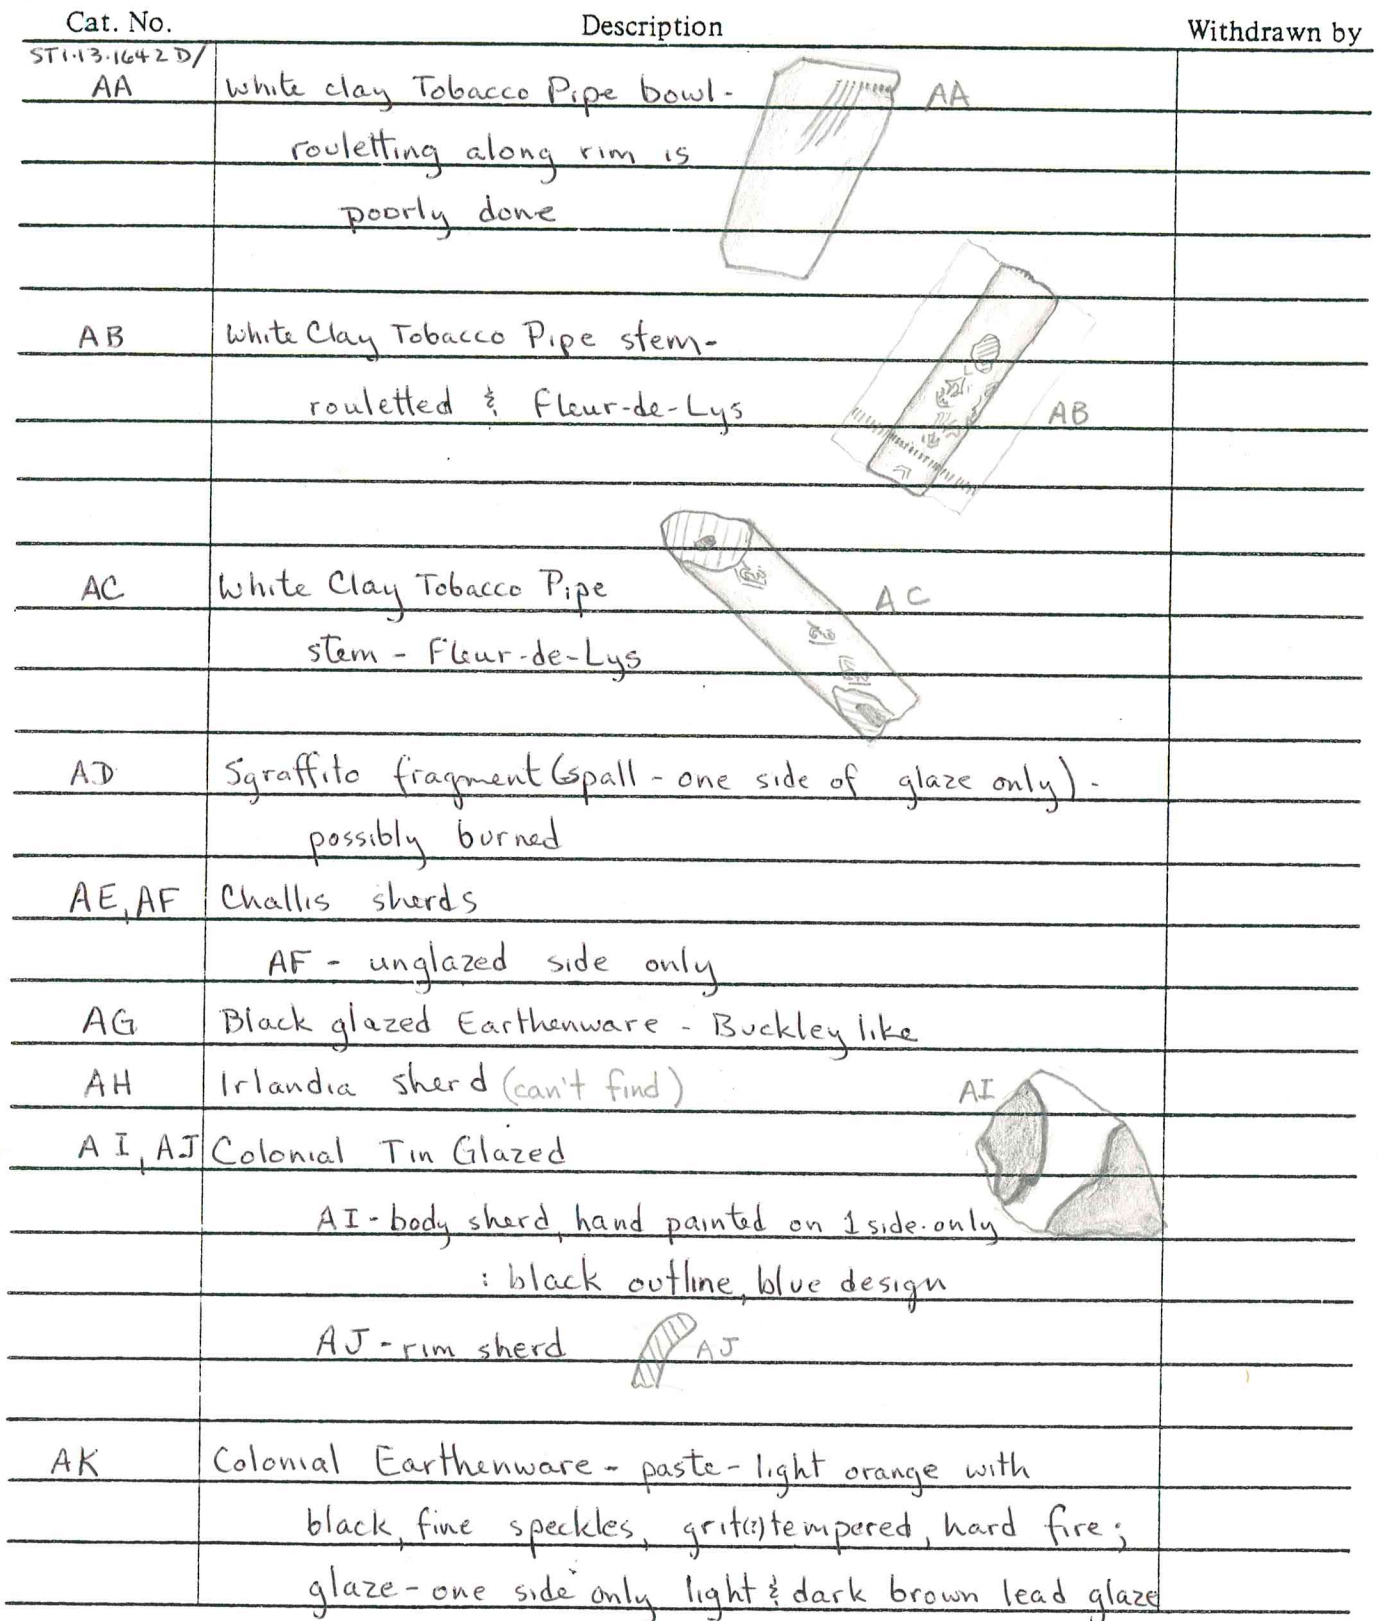 Cat. No. Description Withdrawn by
ST1·13·1642D/
AA White clay Tobacco Pipe bowl- AA
rouletting along rim is
poorly done
AB White Clay Tobacco Pipe stem-
rouletted & Fleur-de-Lys AB
AC White Clay Tobacco Pipe AC
stem - Fleur-de-Lys
AD Sgraffito fragment (spall - one side of glaze only) -
possibly burned
AE, AF Challis sherds
AF - unglazed side only
AG Black glazed Earthenware - Buckley like
AH Irlandia sherd (can't find) AI
AI, AJ Colonial Tin Glazed
AI - body sherd, hand painted on 1 side only
: black outline, blue design
AJ - rim sherd AJ
AK Colonial Earthenware - paste - light orange with
black, fine speckles, grit(?) tempered, hard fire;
glaze - one side only light & dark brown lead glaze